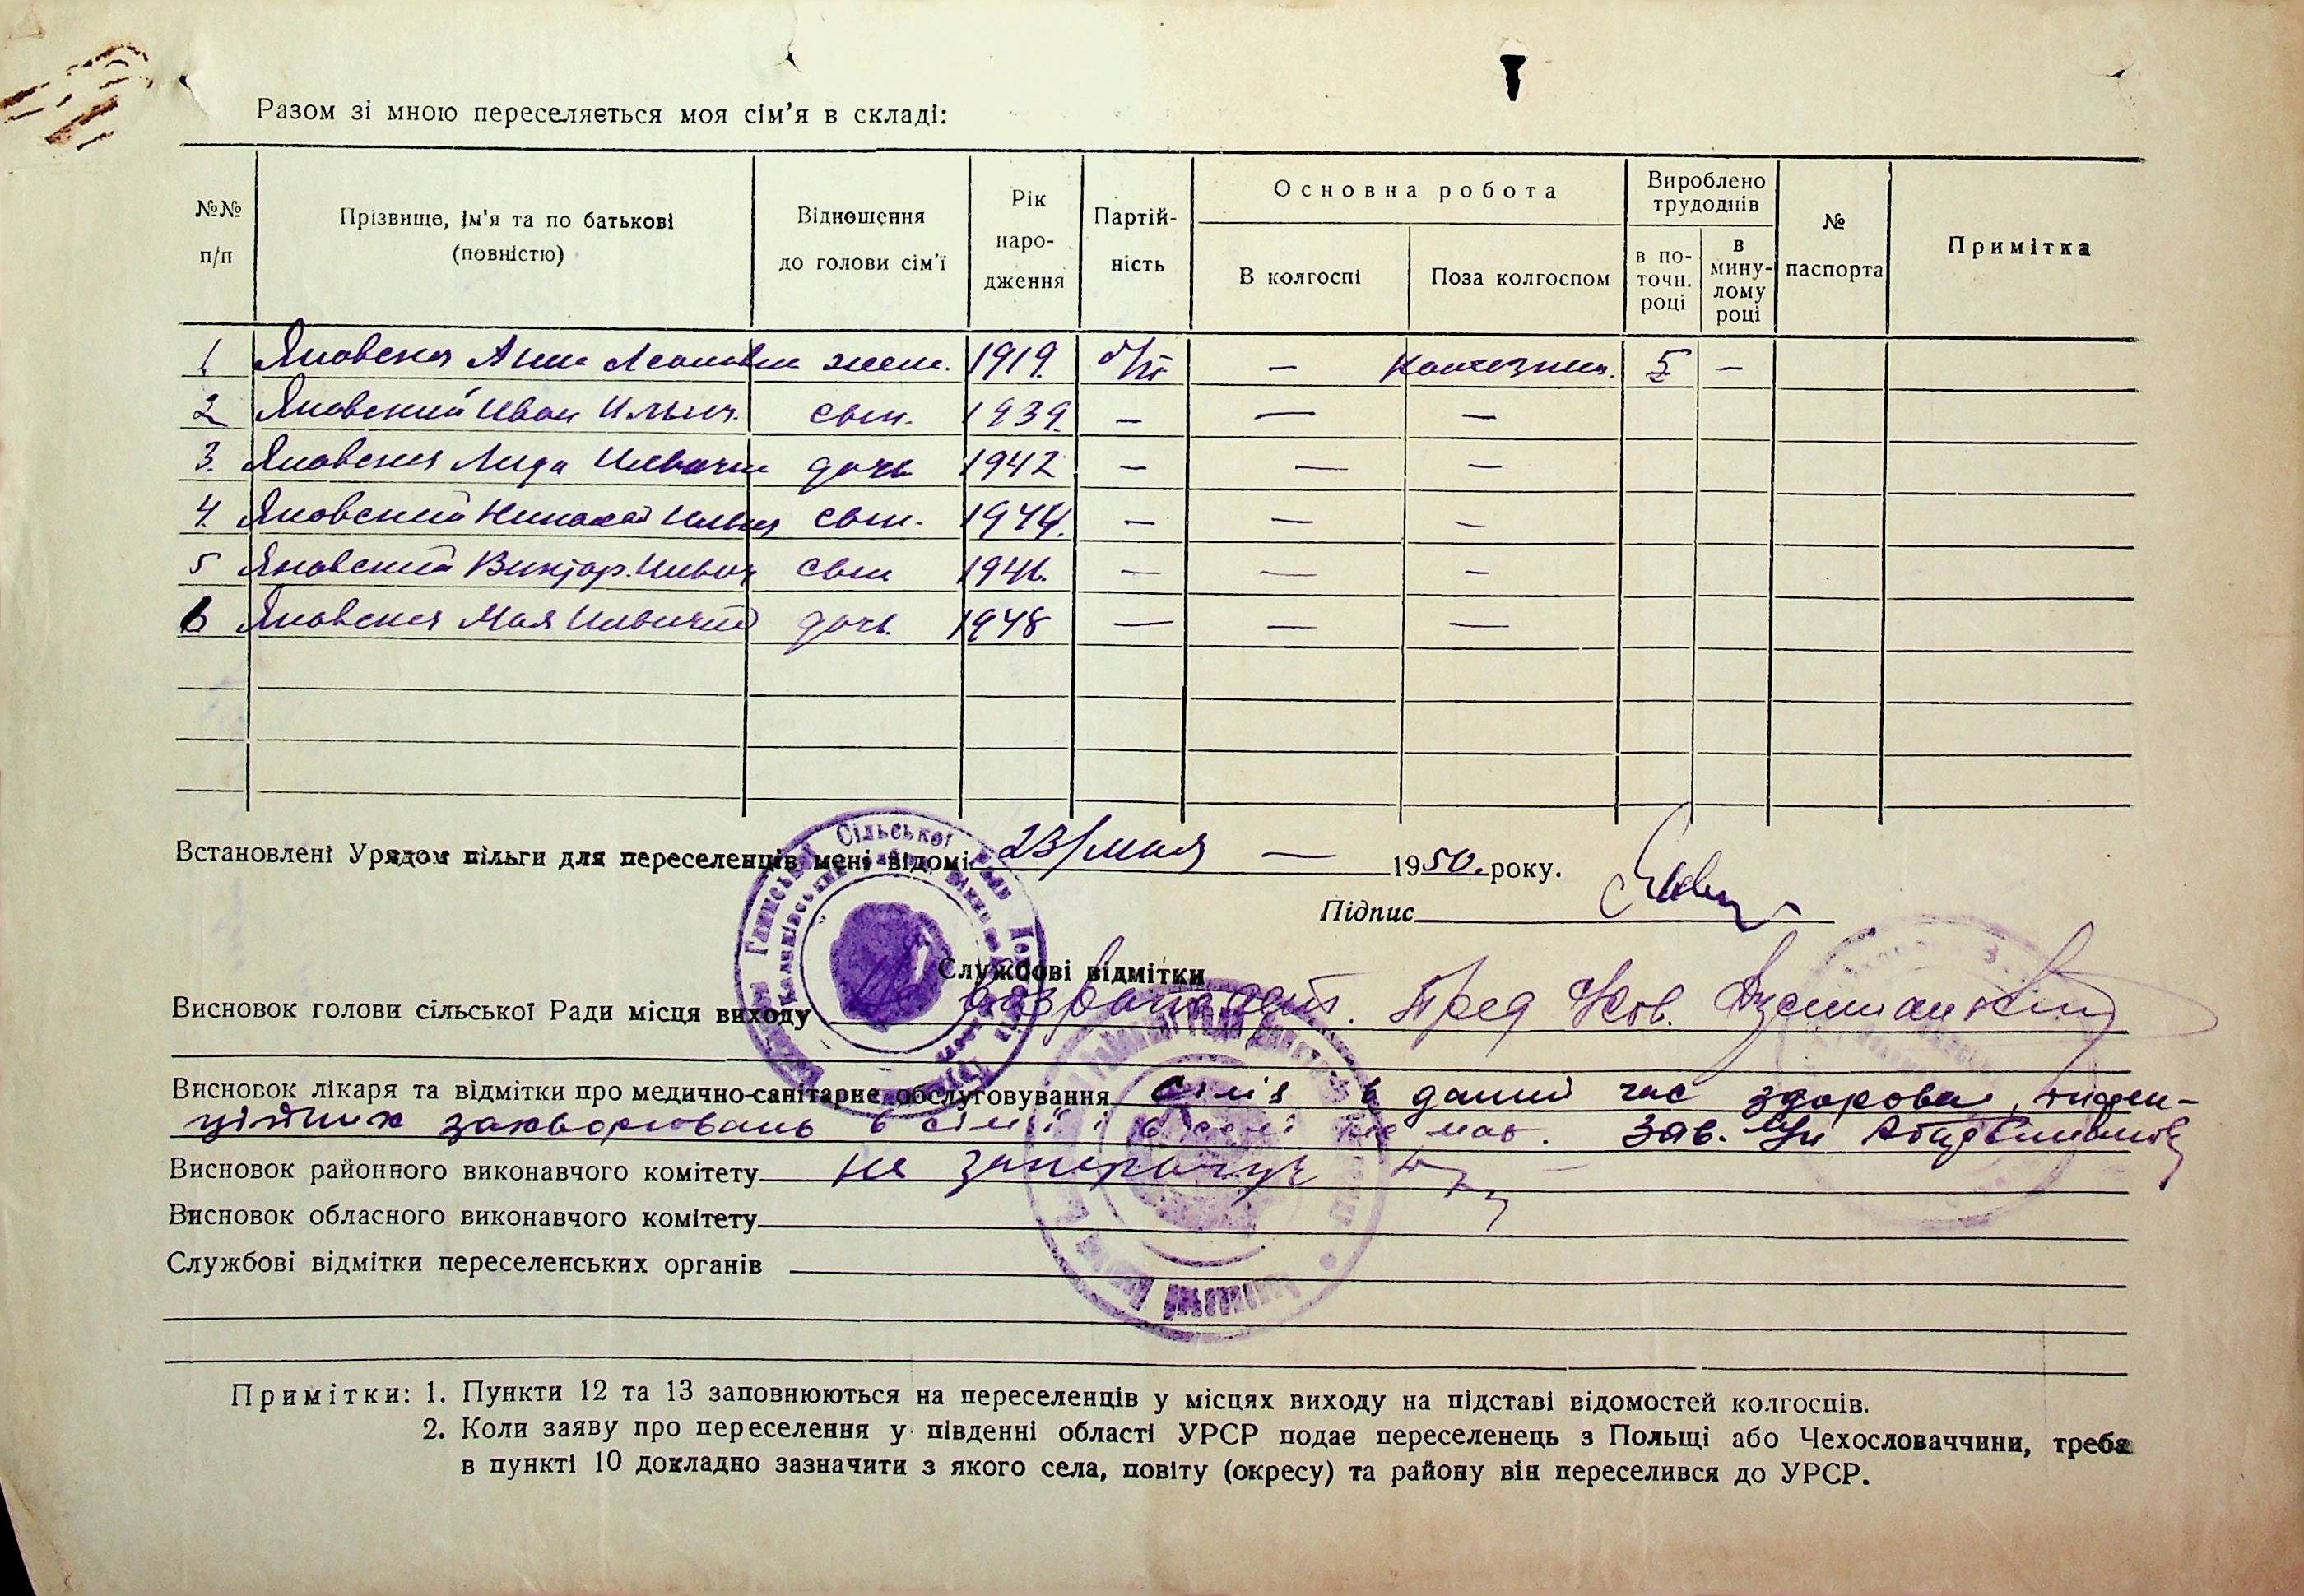 Разом зі мною переселяється моя сім'я в складі:
№№ п/п
Прізвище, ім'я та по батькові (повністю)
Відношення до голови сім'ї
Рік народження
Партійність
Основна робота
В колгоспі
Поза колгоспом
Вироблено трудоднів
в поточн. році
в минулому році
№ паспорта
Примітка
1 Яновская Анна жен. 1919. б/п — 5 —
2 Яновский Иван Ильич. сын. 1939. — — —
3. Яновская Лида дочь 1942 — — —
4. Яновский Николай сын. 1944. — — —
5 Яновский Виктор. сын 1946. — — —
6 Яновская Мая дочь. 1948 — — —
Встановлені Урядом пільги для переселенців мені відомі 23/мая — 1950. року.
Підпис
Службові відмітки
Висновок голови сільської Ради місця виходу
Висновок лікаря та відмітки про медично-санітарне обслуговування сімя в даний час здорова, інфек-
ційних захворювань в сімї і в селі не має. Зав.
Висновок районного виконавчого комітету не заперечує
Висновок обласного виконавчого комітету
Службові відмітки переселенських органів
Примітки: 1. Пункти 12 та 13 заповнюються на переселенців у місцях виходу на підставі відомостей колгоспів.
2. Коли заяву про переселення у південні області УРСР подає переселенець з Польщі або Чехословаччини, треба
в пункті 10 докладно зазначити з якого села, повіту (окресу) та району він переселився до УРСР.